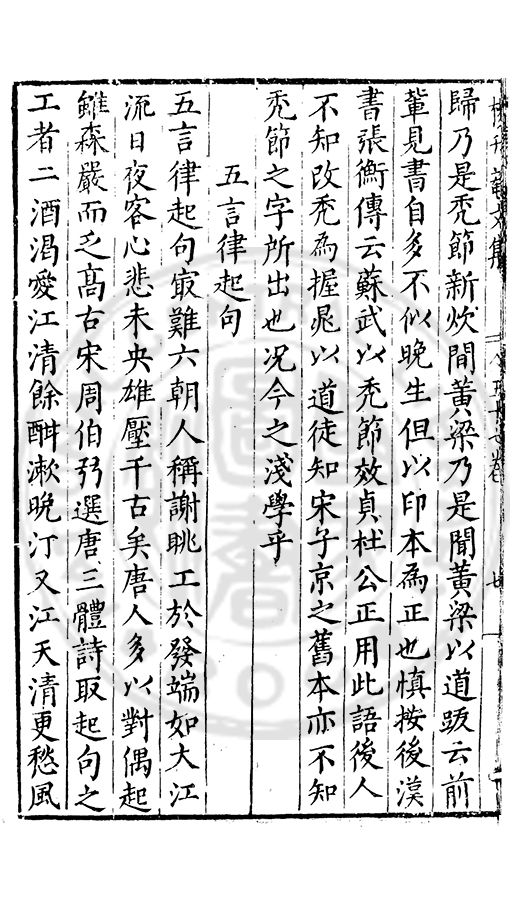 歸乃是禿節新炊間黃梁乃是聞黃梁以道跋云前
輩見書自多不似晚生但以印本為正也慎按後漢
書張衡傳云蘇武以禿節效貞杜公正用此語後人
不知改禿為握晁以道徒知宋子京之舊本亦不知
禿節之字所出也况今之淺學乎
五言律起句
五言律起句㝡難六朝人稱謝眺工於發端如大江
流日夜客心悲未央雄壓千古矣唐人多以對偶起
雖森嚴而乏高古宋周伯弜選唐三體詩取起句之
工者二酒渴愛江清餘酣漱晚汀又江天清更愁風